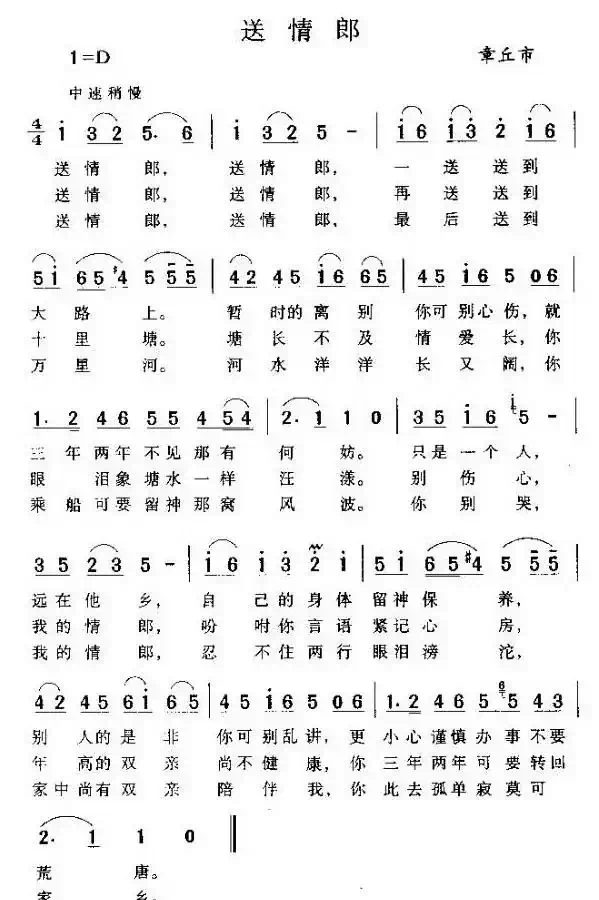 送情郎
1=D
章丘市
中速稍慢
4/4 i 3 2 5. 6 | i 3 2 5 - | i 6 i 3 2 i 6 |
送情郎， 送情郎， 一送送到
送情郎， 送情郎， 再送送到
送情郎， 送情郎， 最后送到
5 i 6 5 #4 5 5 5 | 4 2 4 5 i 6 6 5 | 4 5 i 6 5 0 6 |
大路上。 暂时的离别 你可别心伤，就
十里塘。 塘长不及 情爱长，你
万里河。 河水洋洋 长又阔，你
1. 2 4 6 5 5 4 5 4 | 2. 1 1 0 | 3 5 i 6 i 5 - |
三年两年不见那有 何妨。 只是一个人，
眼泪象塘水一样 汪漾。 别伤心，
乘船可要留神那窝 风波。 你别哭，
3 5 2 3 5 - | i 6 i 3 2 i | 5 i 6 5 #4 5 5 5 |
远在他乡， 自己的身体 留神保养，
我的情郎， 吩咐你言语 紧记心房，
我的情郎， 忍不住两行 眼泪滂沱，
4 2 4 5 6 i 6 5 | 4 5 i 6 5 0 6 | 1. 2 4 6 6 5 5 4 3 |
别人的是非 你可别乱讲，更 小心谨慎办事不要
年高的双亲 尚不健康，你 三年两年可要转回
家中尚有双亲 陪伴我，你 此去孤单寂莫可
2. 1 1 0 ‖
荒唐。
家乡。